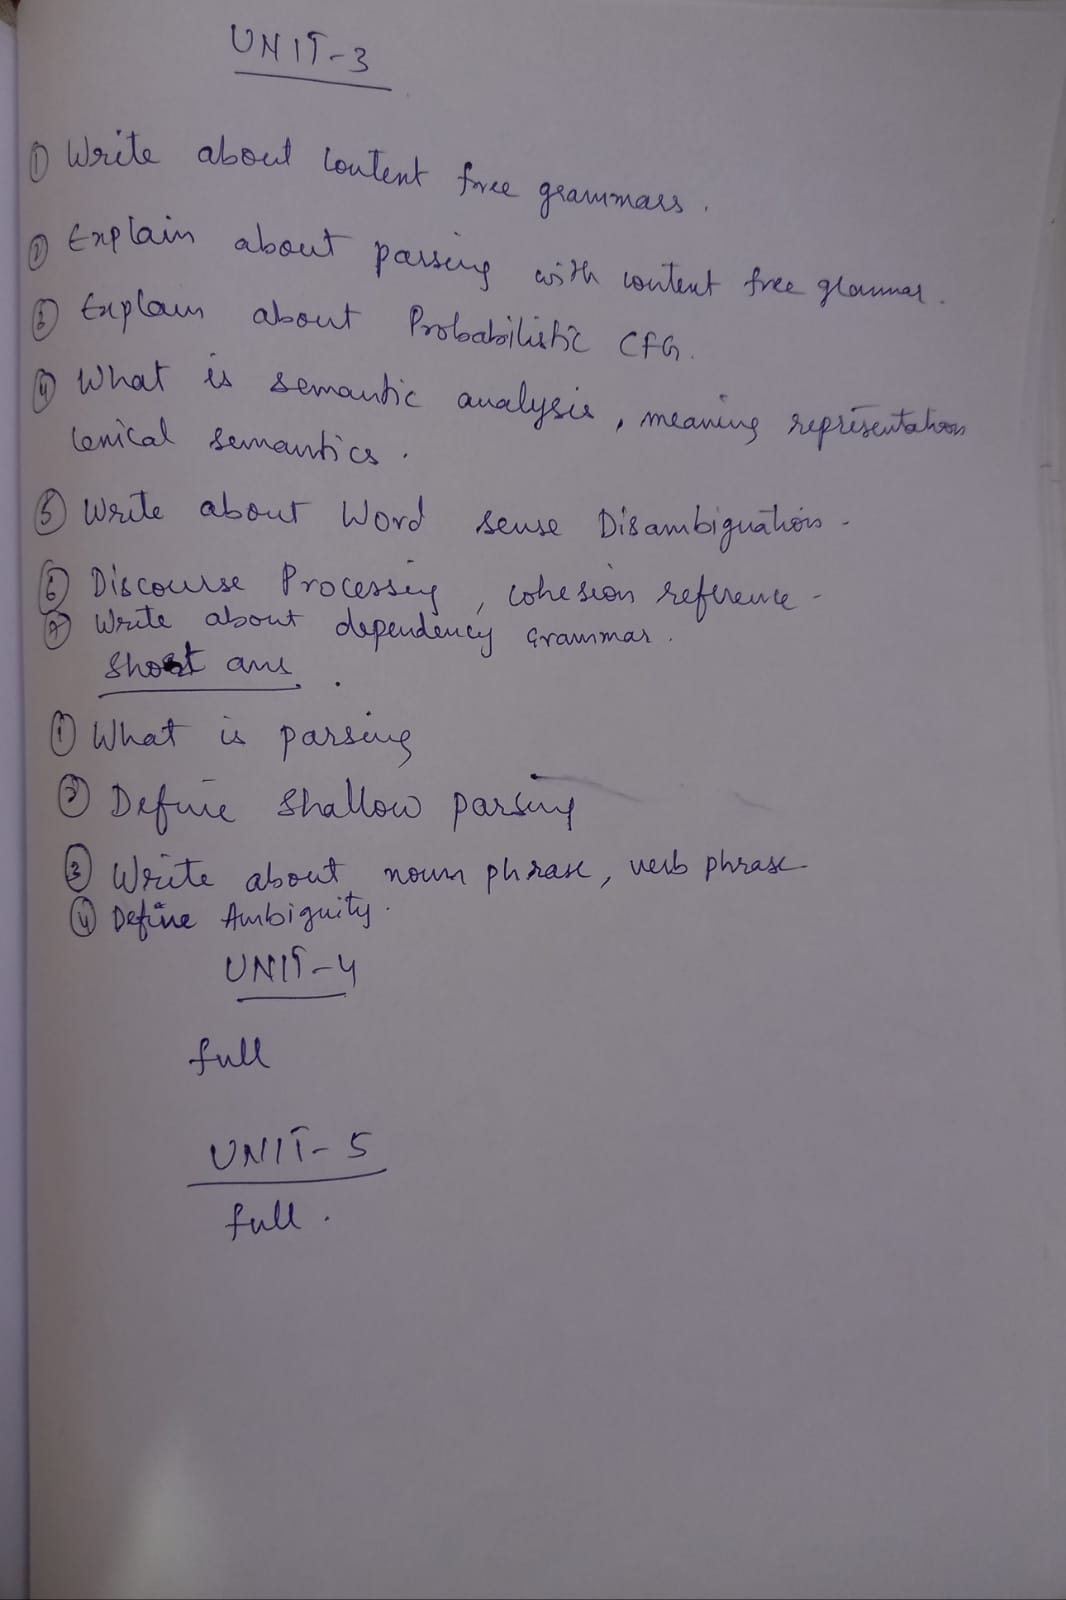 UNIT-3
① Write about Content free grammars.
② Explain about parsing with content free grammar.
③ Explain about Probabilistic CFG.
④ What is semantic analysis, meaning representation
lenical semantics.
⑤ Write about Word sense Disambiguation.
⑥ Discourse Processing, cohesion reference.
⑦ Write about dependency Grammar.
Short ans.
① What is parsing
② Define Shallow parsing
③ Write about noun phrase, verb phrase
④ Define Ambiguity.
UNIT-4
full
UNIT-5
full.